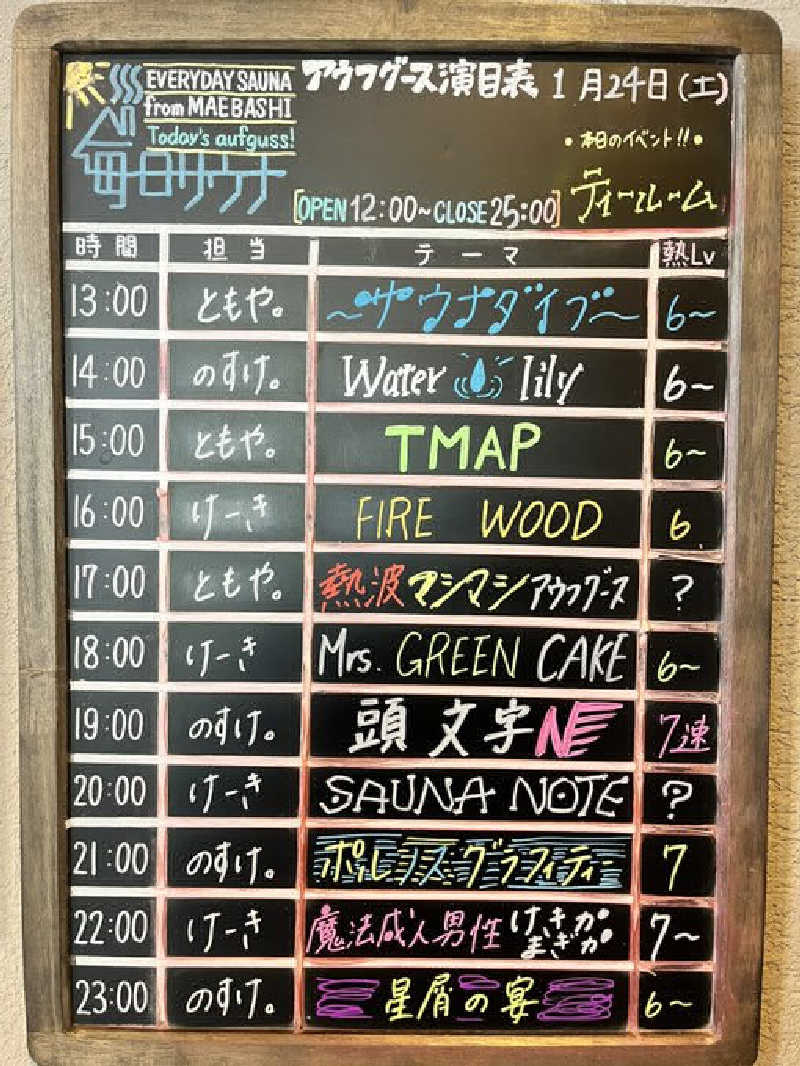 EVERYDAY SAUNA
from MAEBASHI
Today's aufguss!
毎日サウナ
アウフグース演目表 1月24日(土)
•本日のイベント!!•
ティールーム
[OPEN 12:00~CLOSE 25:00]
時間 担当 テーマ 熱Lv
13:00 ともや。 ~サウナダイブ~ 6~
14:00 のすけ。 Water lily 6~
15:00 ともや。 TMAP 6~
16:00 けーき FIRE WOOD 6
17:00 ともや。 熱波マシマシアウフグース ?
18:00 けーき Mrs. GREEN CAKE 6~
19:00 のすけ。 頭文字NE 7速
20:00 けーき SAUNA NOTE ?
21:00 のすけ。 ポルノスグラフィティー 7
22:00 けーき 魔法成人男性けきカ゚まぎカ゚ 7~
23:00 のすけ。 星屑の宴 6~